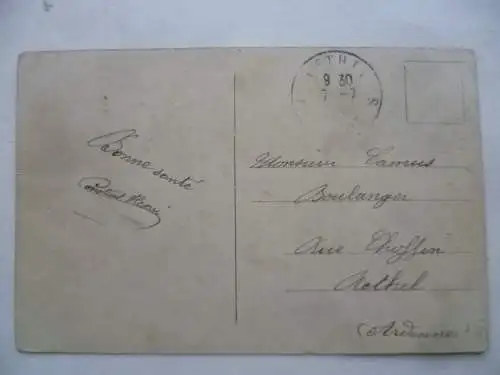 Bonne santé
RETHEL
8 30
7 - 7
Monsieur Camus
Boulanger
Rue Thoffin
Rethel
(Ardennes)